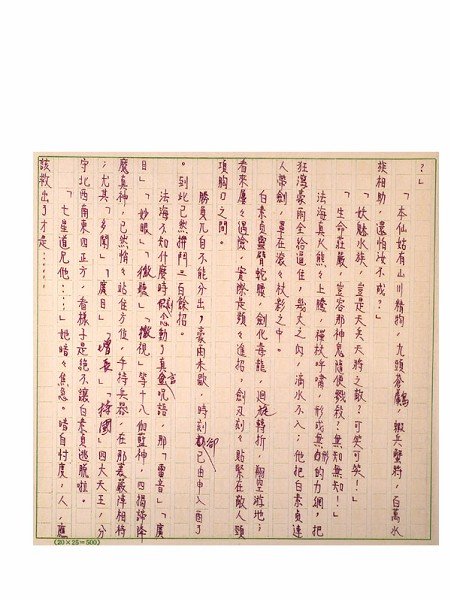 ？」
「本仙姑有山川精狗，九頭蒼鶴，蝦兵蟹將，百萬水
族相助，還怕淹不成？」
「妖魅水族，豈是天兵天將之敵？可笑可笑！」
「生命莊嚴，豈容那神鬼隨便戮殺？無知無知！」
法海真火熊々上騰，禪杖呼嘯，形成無形的力網，把
狂濤豪雨全給逼住，幾丈之內，滴水不入；他把白素貞連
人帶劍，單在滾々杖影之中。
白素貞靈臂蛇腰，劍化毒龍，迴旋轉折，翩空游地；
看來屢々遇險，實際是頻々進招，劍刃刻々貼緊在敵人頸
項胸口之間。
勝負兀自不能分出，豪雨未歇，時刻卻已由申入酉了
。到此已然拼鬥三百餘招。
法海不知什麼時刻念動了真言咒語，那「雷音」「廣
目」「妙眼」「徹聽」「徹視」等十八伽藍神，四揭諦降
魔真神，已然悄々站住方位，手持兵器，在那裏嚴陣相待
；尤其「多聞」「廣目」「增長」「持國」四大天王，分
守北西南東四正方，看樣子是絕不讓白素貞逃脫啦。
「七星道兄他……」她暗々焦急。暗自忖度，人，應
該救出了才是……
(20×25=500)